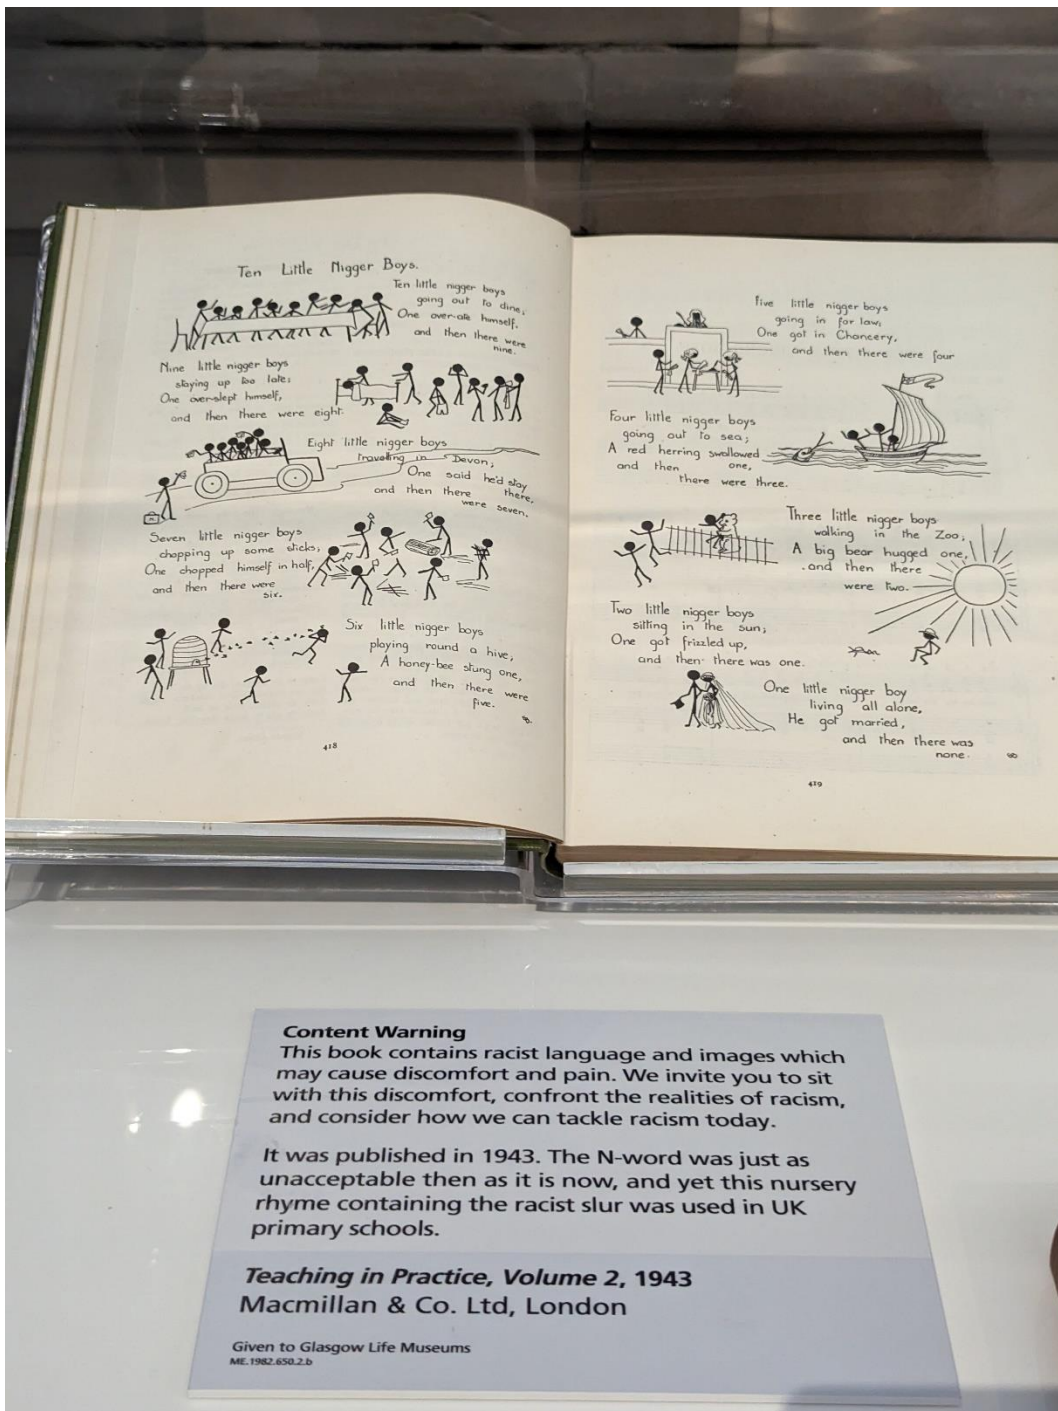 Ten Little Nigger Boys.
Ten little nigger boys
going out to dine;
One over-ate himself,
and then there were
nine.
Nine little nigger boys
staying up too late;
One over-slept himself,
and then there were eight.
Eight little nigger boys
travelling in Devon;
One said he'd stay
and then there there,
were seven.
Seven little nigger boys
chopping up some sticks;
One chopped himself in half,
and then there were
six.
Six little nigger boys
playing round a hive;
A honey-bee stung one,
and then there were
five.
418
Five little nigger boys
going in for law;
One got in Chancery,
and then there were four
Four little nigger boys
going out to sea;
A red herring swallowed
and then one,
there were three.
Three little nigger boys
walking in the Zoo;
A big bear hugged one,
and then there
were two.
Two little nigger boys
sitting in the sun;
One got frizzled up,
and then there was one.
One little nigger boy
living all alone,
He got married,
and then there was
none.
419
Content Warning
This book contains racist language and images which
may cause discomfort and pain. We invite you to sit
with this discomfort, confront the realities of racism,
and consider how we can tackle racism today.
It was published in 1943. The N-word was just as
unacceptable then as it is now, and yet this nursery
rhyme containing the racist slur was used in UK
primary schools.
Teaching in Practice, Volume 2, 1943
Macmillan & Co. Ltd, London
Given to Glasgow Life Museums
ME.1982.650.2.b